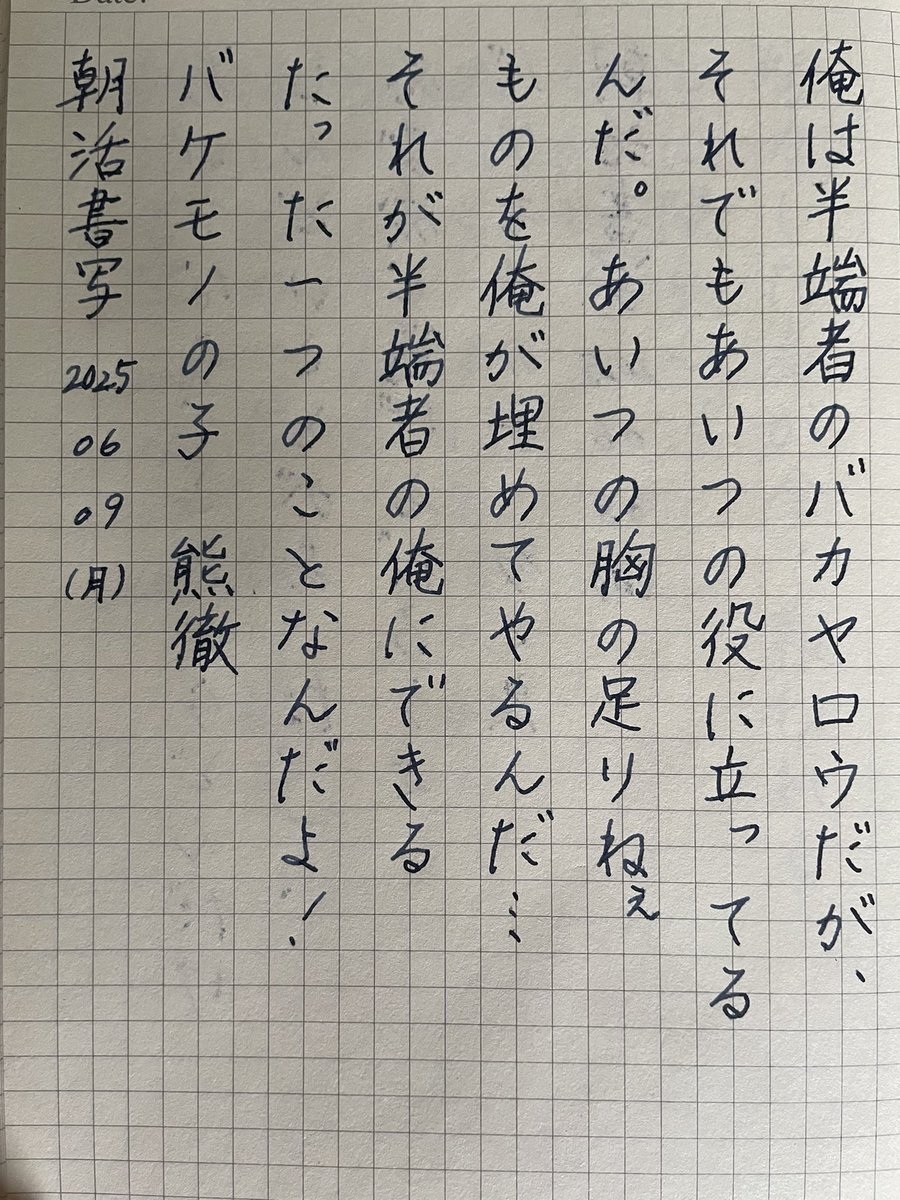 俺は半端者のバカヤロウだが、
それでもあいつの役に立ってる
んだ。あいつの胸の足りねぇ
ものを俺が埋めてやるんだ…
それが半端者の俺にできる
たった一つのことなんだよ!
バケモノの子 熊徹
朝活書写 2025 06 09 (月)